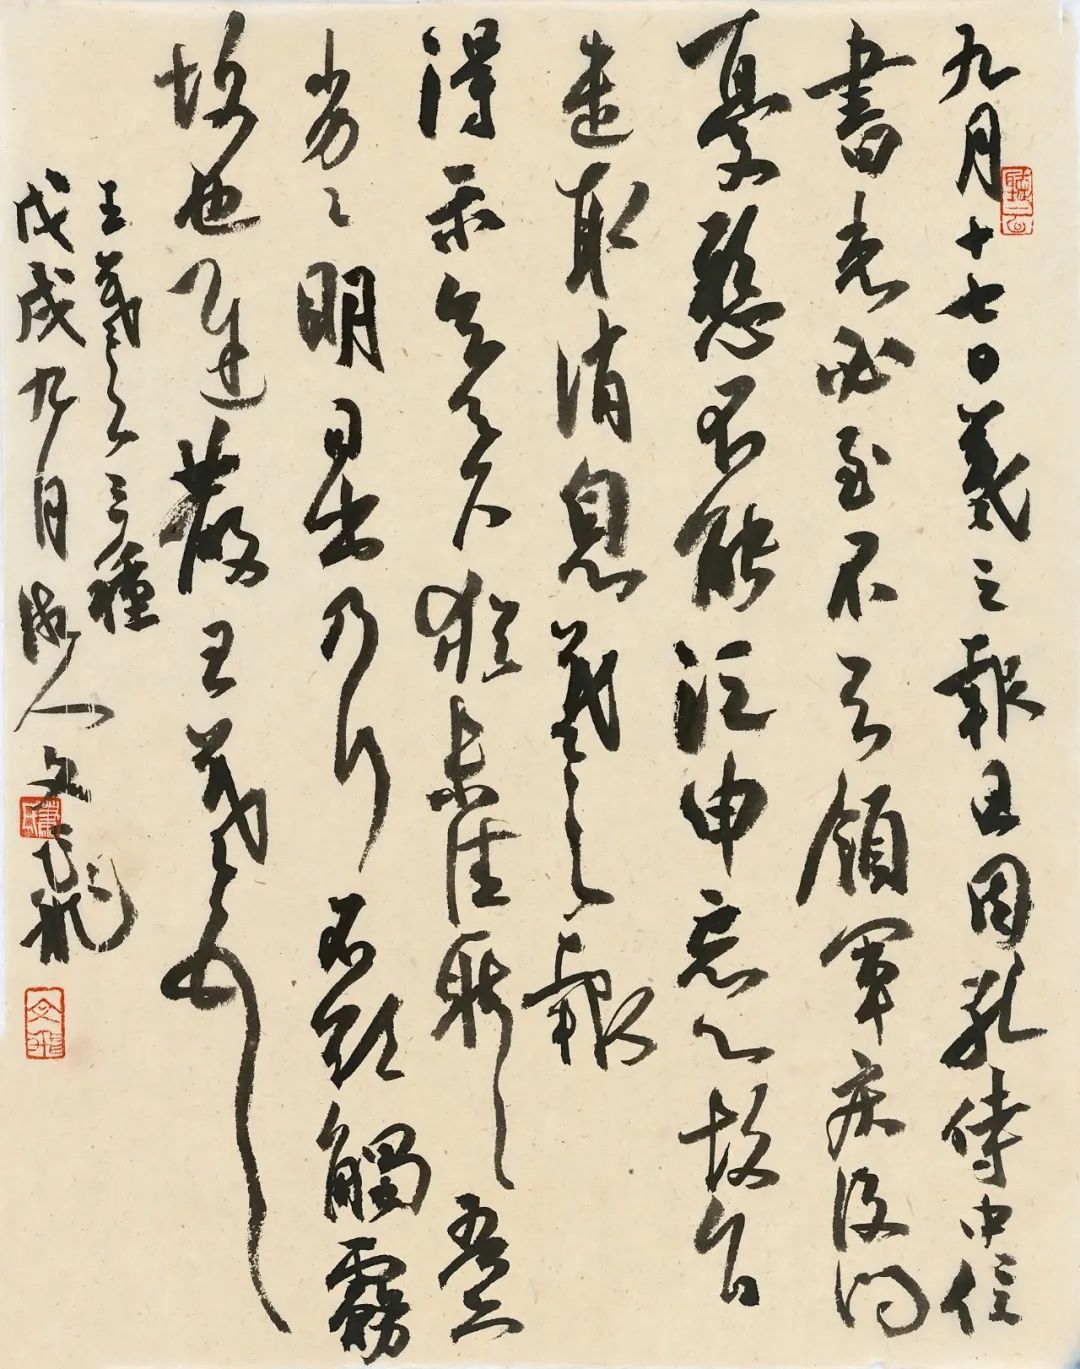 九月十七日羲之報且因孔侍中信
書想必至不知領軍疾後問
憂懸不能須臾忘心故旨
遣取消息羲之報
得示知足下猶未佳耿耿吾亦
劣劣明日出乃行不欲觸霧
故也遲散王羲之頓首
王羲之三種
戊戌九月人文龍